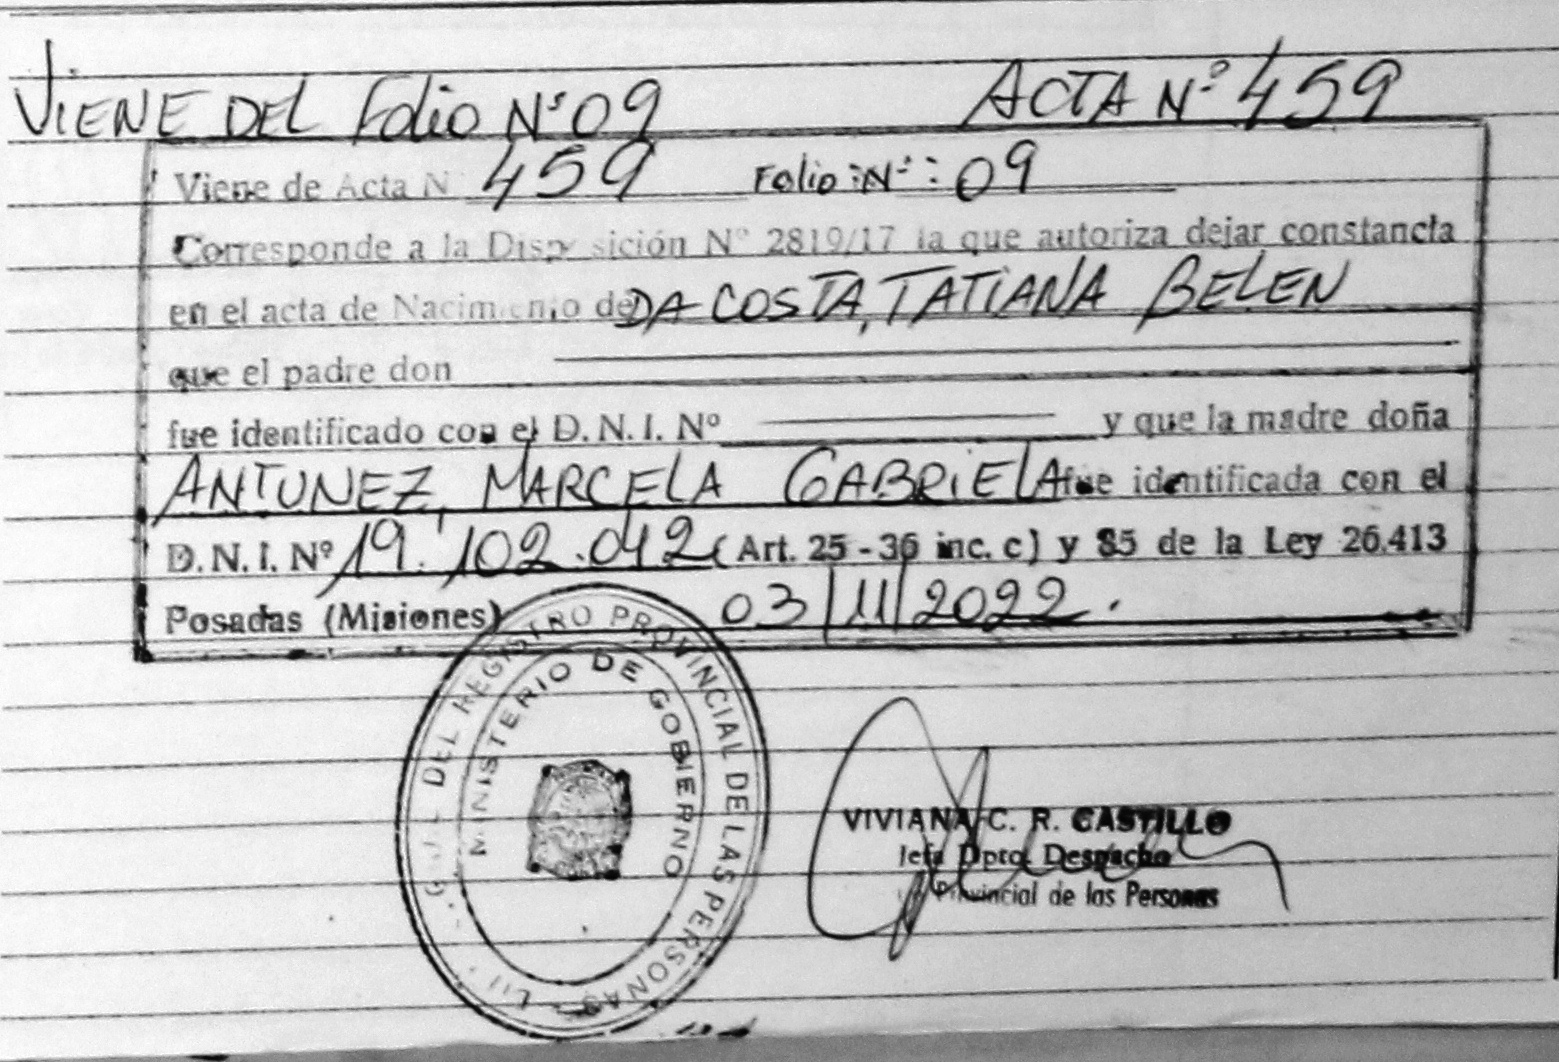 VIENE DEL Folio N° 09 ACTA N° 459
Viene de Acta N 459 Folio N°: 09
Corresponde a la Disposición N° 2819/17 la que autoriza dejar constancia
en el acta de Nacimiento de DA COSTA, TATIANA BELEN
que el padre don
fue identificado con el D. N. I. Nº y que la madre doña
ANTUNEZ, MARCELA GABRIELA fue identificada con el
D. N. I. Nº 19.102.042 (Art. 25 - 36 inc. c) y 85 de la Ley 26.413
Posadas (Misiones) 03/11/2022.
DEL REGISTRO PROVINCIAL DE LAS PERSONAS
MINISTERIO DE GOBIERNO
VIVIANA C. R. CASTILLO
Jefa Dpto. Despacho
Provincial de las Personas